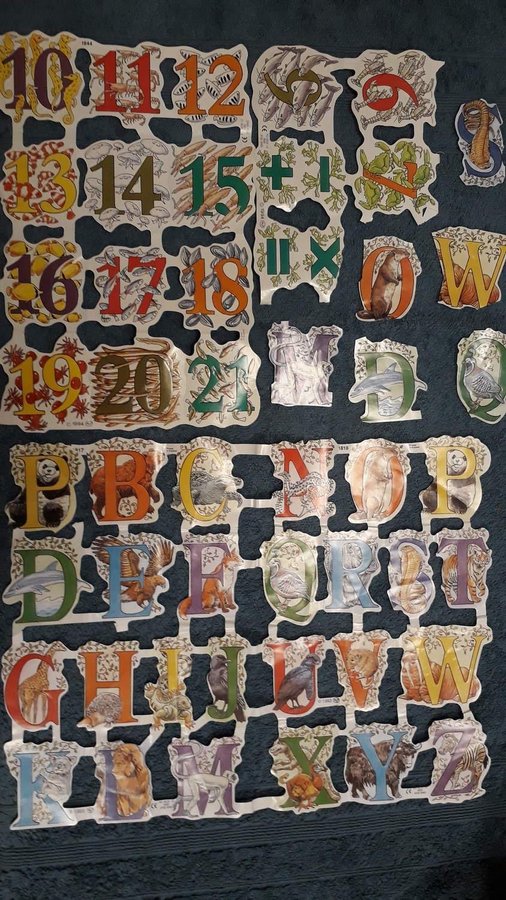 1944
10 11 12
13 14 15
16 17 18
19 20 21
6 9
+ -
= ×
7
S
O W
M D Q
P B C
D E F
G H I J
K L M
1818
N O P
Q R S T
U V W
X Y Z